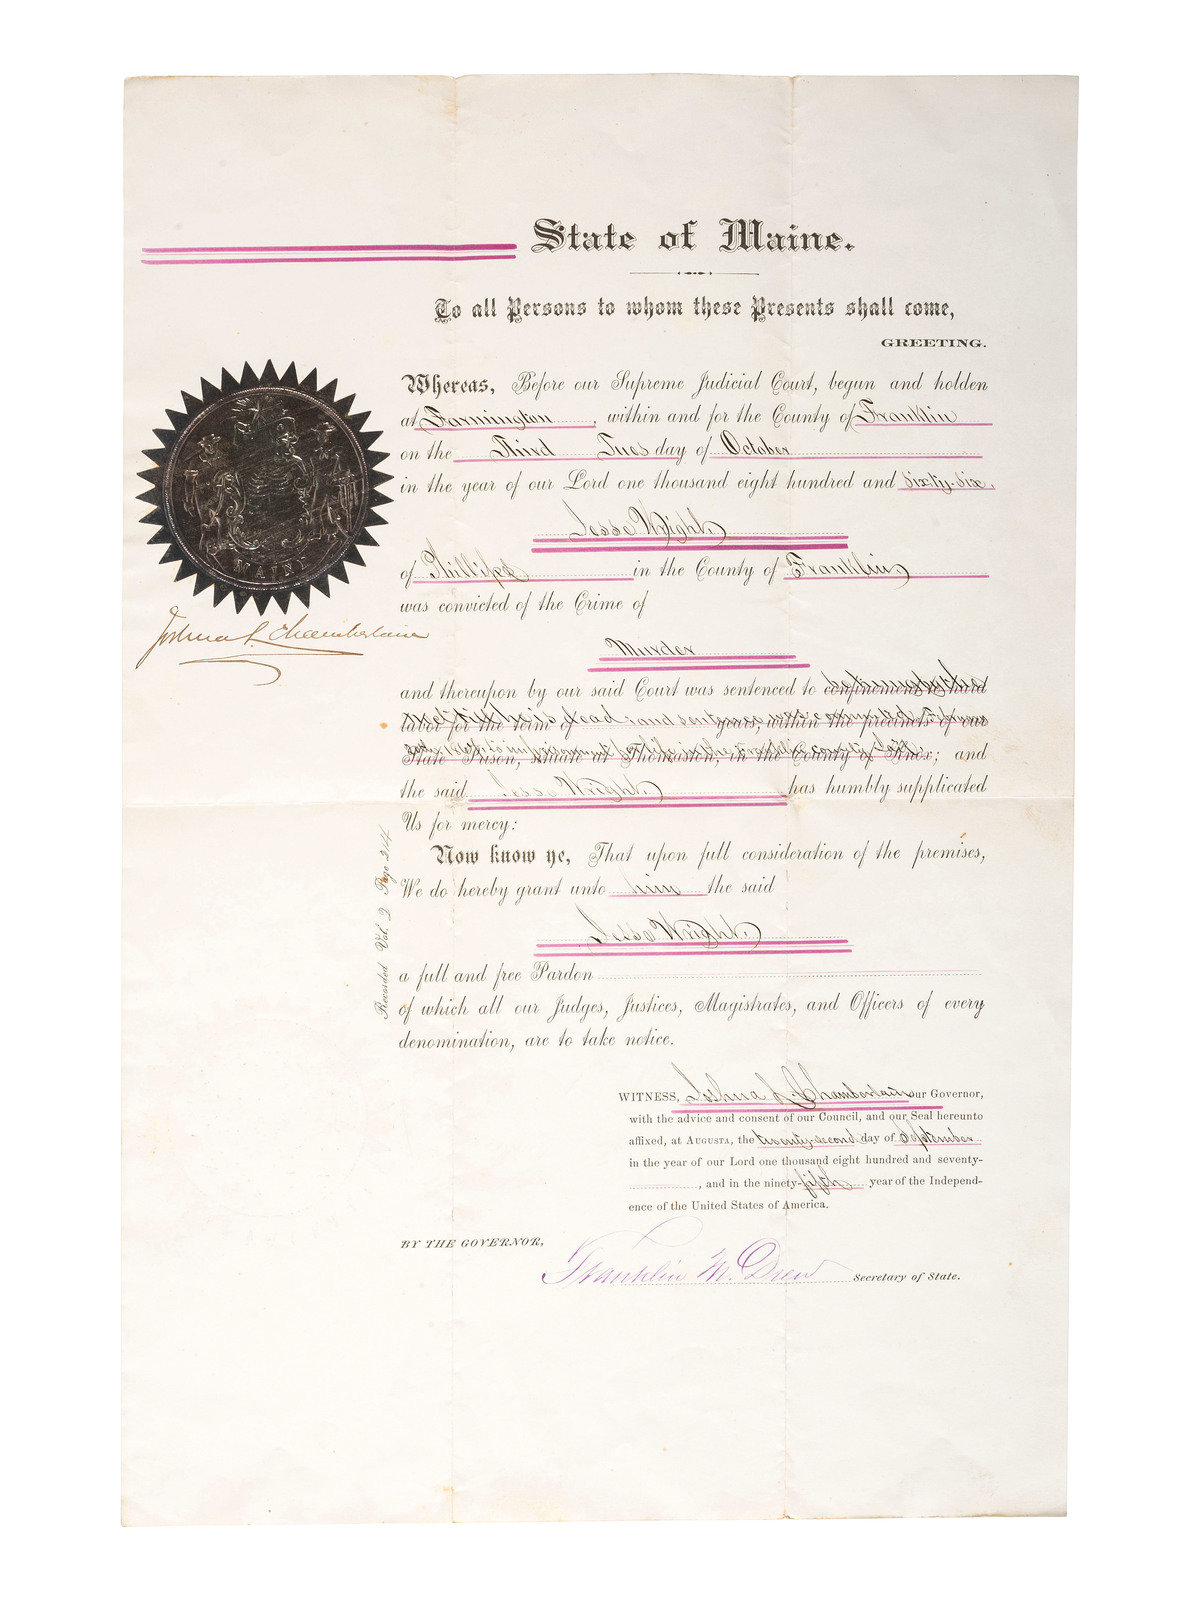 State of Maine.
To all Persons to whom these Presents shall come,
GREETING.
Whereas, Before our Supreme Judicial Court, begun and holden
at Farmington, within and for the County of Franklin
on the Third Tuesday of October
in the year of our Lord one thousand eight hundred and sixty-six,
Jesse Wright
of Phillips in the County of Franklin
was convicted of the Crime of
Murder
and thereupon by our said Court was sentenced to confinement to hard
labor for the term of years, within the precincts of our
State Prison, situate at Thomaston, in the County of Knox; and
the said Jesse Wright has humbly supplicated
Us for mercy:
Now know ye, That upon full consideration of the premises,
We do hereby grant unto him the said
Jesse Wright
a full and free Pardon
of which all our Judges, Justices, Magistrates, and Officers of every
denomination, are to take notice.
MAINE
Joshua L. Chamberlain
Recorded Vol. 2 Page 214
WITNESS, Joshua L. Chamberlain our Governor,
with the advice and consent of our Council, and our Seal hereunto
affixed, at AUGUSTA, the twenty-second day of September
in the year of our Lord one thousand eight hundred and seventy-
, and in the ninety-fifth year of the Independ-
ence of the United States of America.
BY THE GOVERNOR,
Franklin M. Drew Secretary of State.